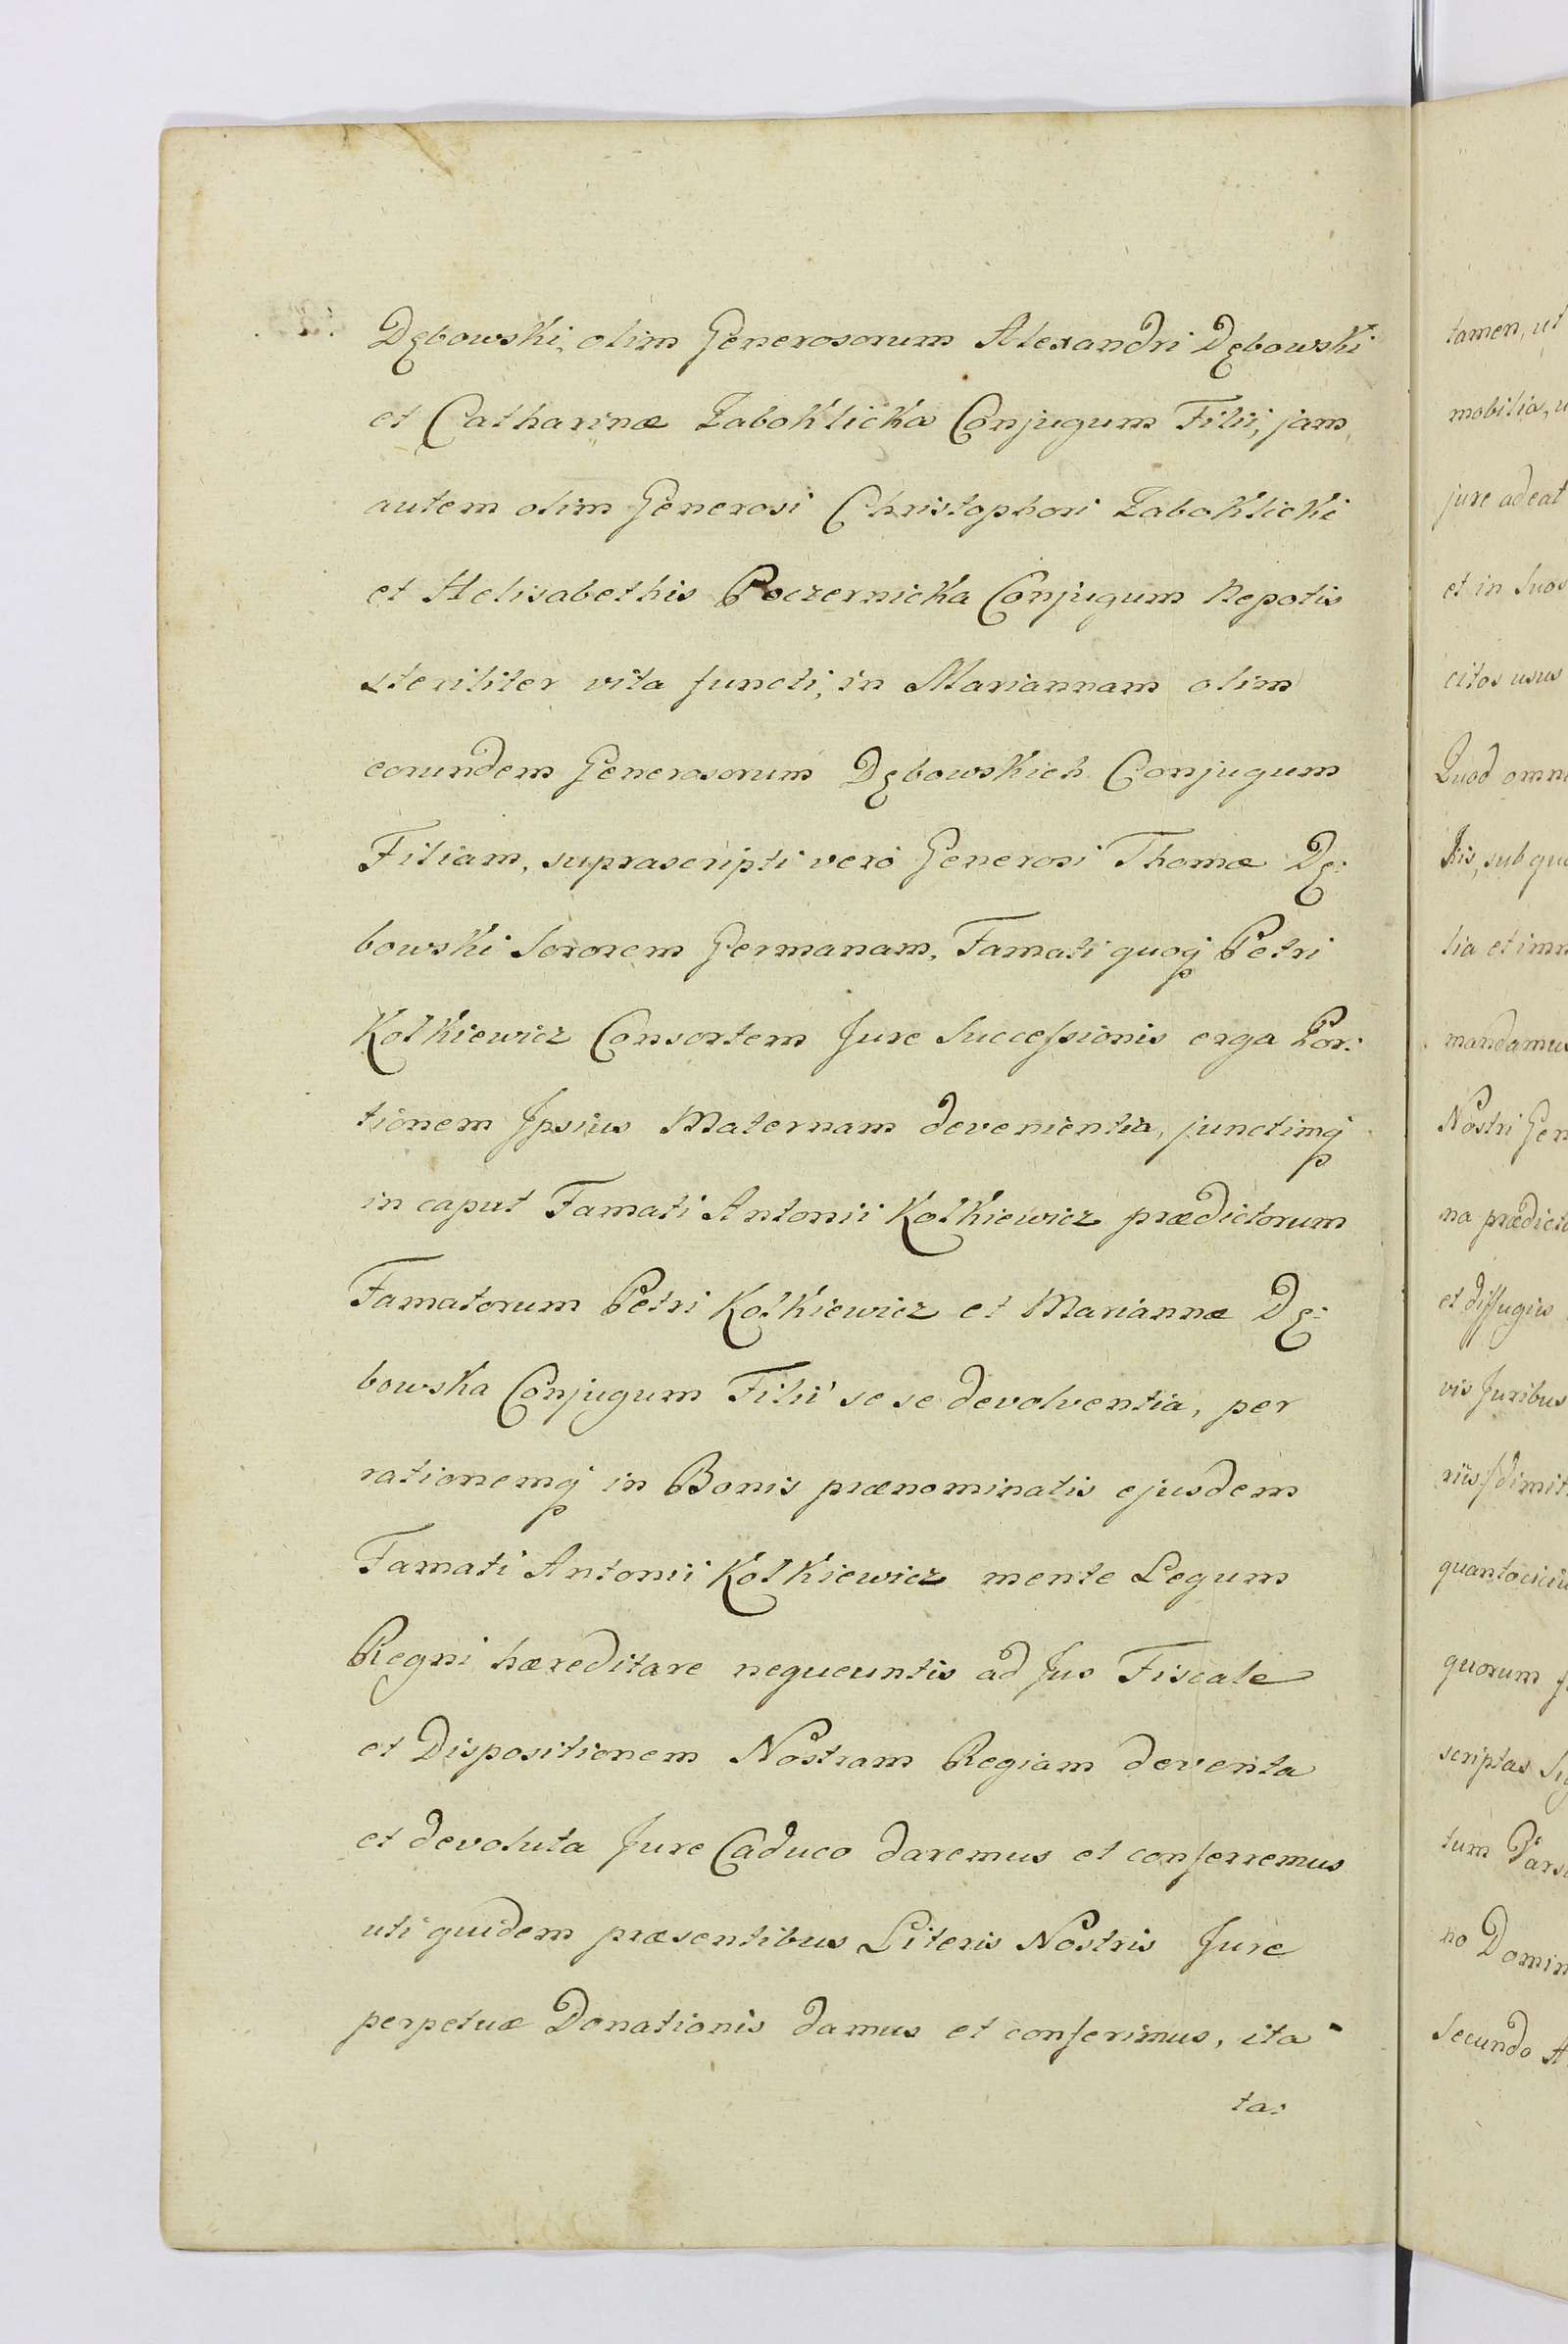 Dębowski, olim Generosorum Alexandri Dębowski
et Catharinæ Zaboklicka Conjugum Filii, jam
autem olim Generosi Christophori Zaboklicki
et Helisabethis Poczernicka Conjugum Nepotis
steriliter vita functi, in Mariannam olim
eorundem Generosorum Dębowskich Conjugum
Filiam, suprascripti vero Generosi Thomæ Dę:
bowski Sororem Germanam, Famati quoq̄ Petri
Kolkiewicz Consortem Jure Successionis erga Por:
tionem Ipsius Maternam devenientia, junctimq̄
in caput Famati Antonii Kolkiewicz prædictorum
Famatorum Petri Kolkiewicz et Mariannæ Dę:
bowska Conjugum Filii se se devolventia, per
rationemq̄ in Bonis prænominatis ejusdem
Famati Antonii Kolkiewicz mente Legum
Regni hæreditare nequeuntis ad Jus Fiscale
et Dispositionem Nostram Regiam deventa
et devoluta Jure Caduco daremus et conferremus
uti quidem præsentibus Literis Nostris Jure
perpetuæ Donationis damus et conferimus, ita
ta:
tamen, ut
mobilia, u
jure adeat
et in Suos
citos usus
Quod omni
sub qu
lia et imm
mandamus
Nostri Gen
na prædict
et diffugiis
vis Juribus
riis
quorum
scriptas Sig
tum Vars
no Domin
Secundo